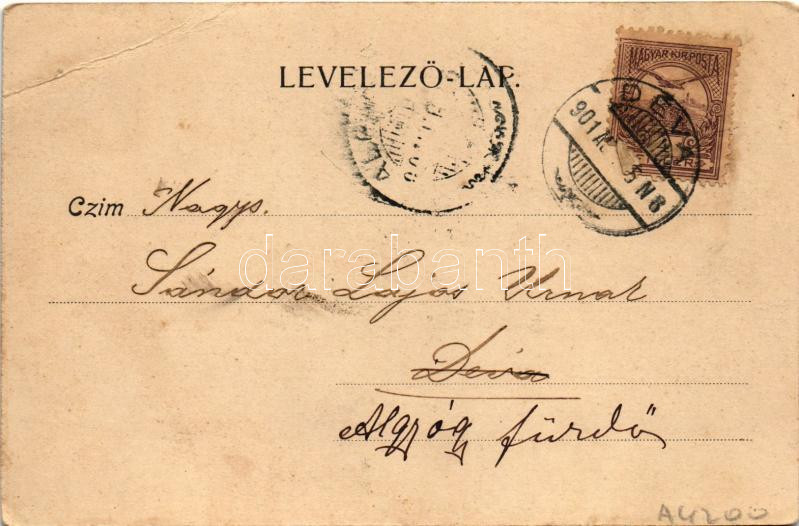 MAGYAR KIR. POSTA
LEVELEZŐ-LAP.
DÉVA
901
Czim Nagys.
Sándor Lajos Urnak
Déva
Algyógy fürdő
darabanth
A4200